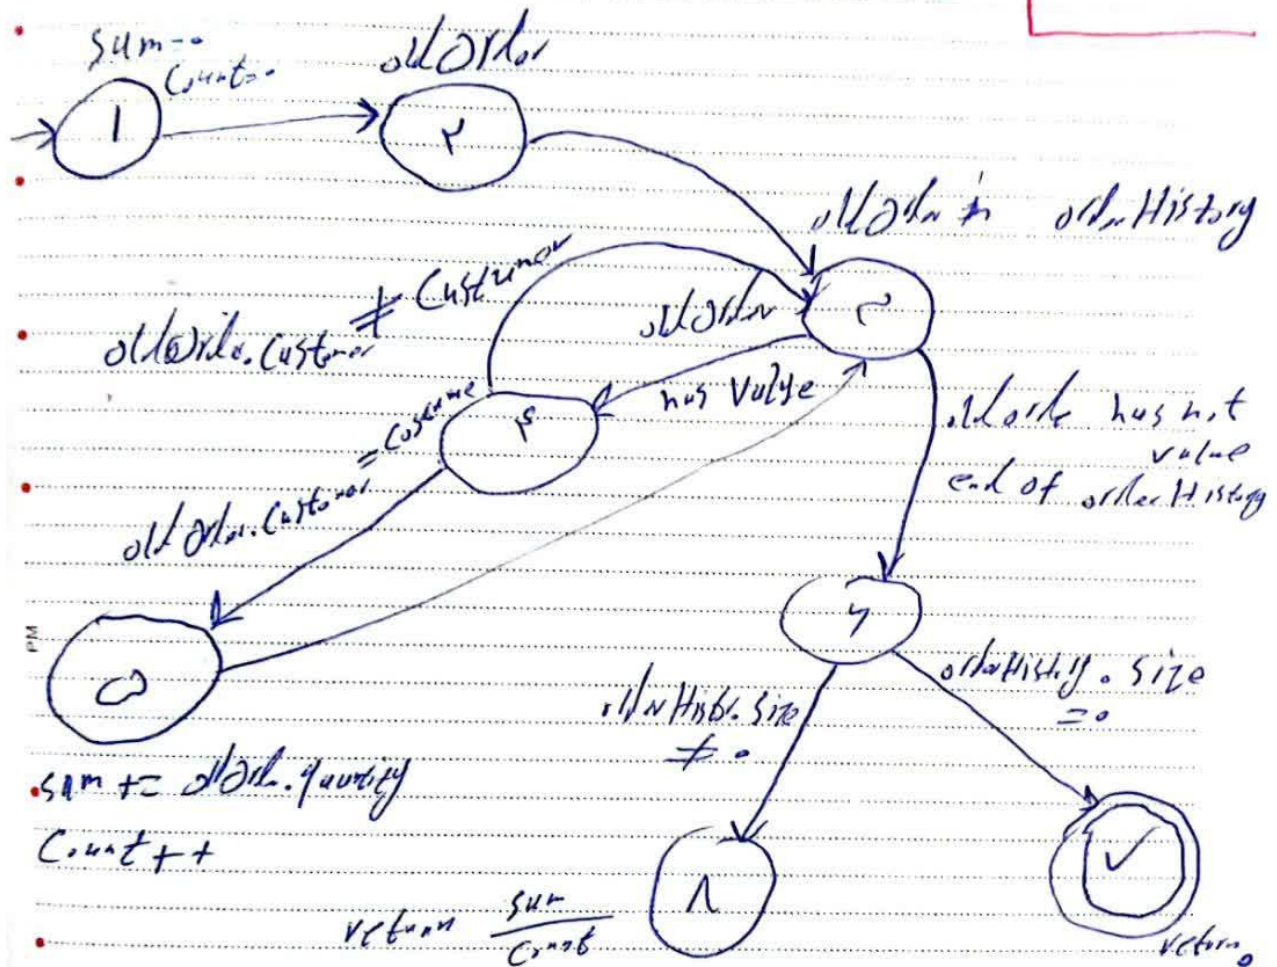 sum=۰
Count=۰
oldOrder
۱
۲
oldOrder in orderHistory
۳
oldOrder.Customer ≠ Customer
oldOrder
has Value
۴
oldOrder.Customer = Costume
oldorde has not
value
end of orderHistory
۵
۶
sum += oldOrder.quantity
Count++
orderHistor.size
≠ ۰
orderHistory.size
=۰
۸
۷
return sum
Count
return ۰
PM